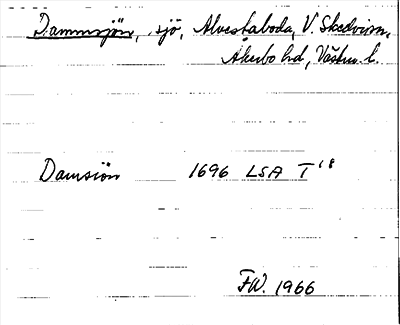 Dammsjön, sjö, Alvestaboda, V. Skedvi sn,
Åkerbo hd, Västm. l.
Damsiön 1696 LSA T 18
F.W. 1966